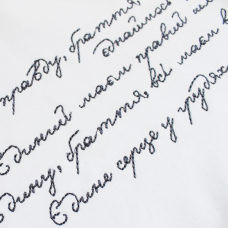 правду, браття,
єднаймось
Єдиний маєм правий
єдину, браття, всі маєм
Єдине серце у грудях